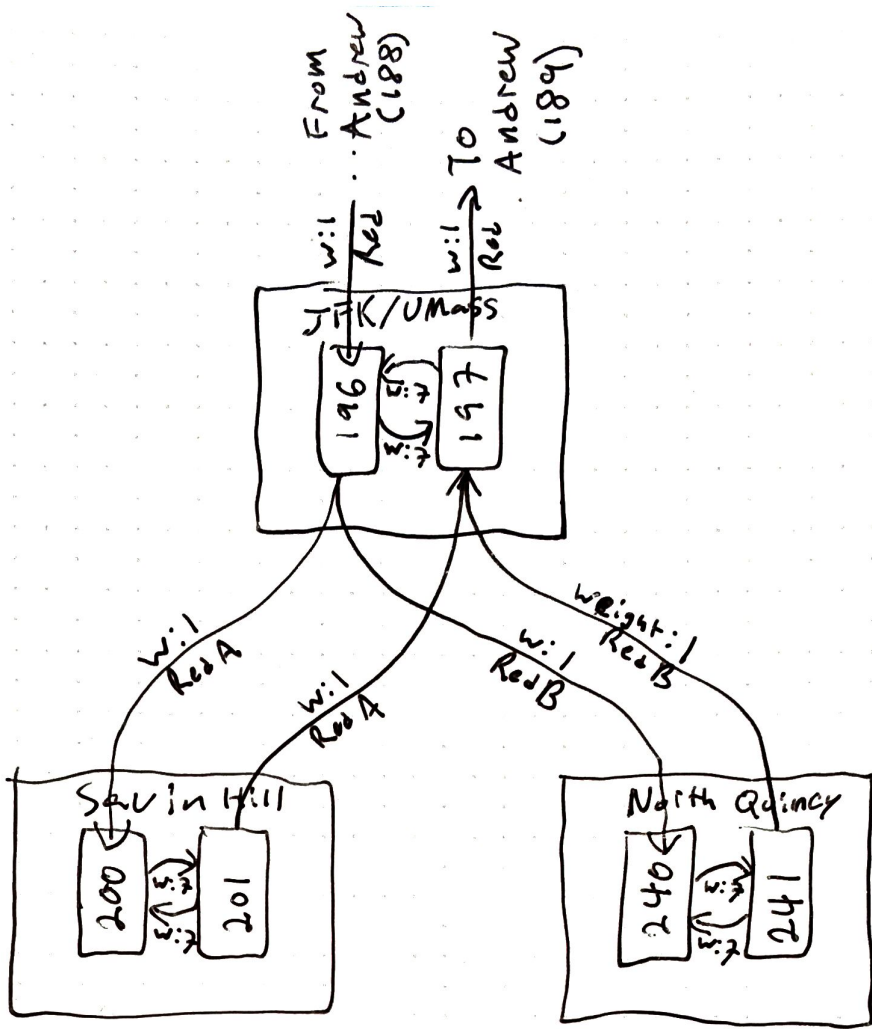 From
Andrew
(188)
To
Andrew
(189)
w:1
Red
w:1
Red
JFK/UMass
196
w:7
w:7
197
w:1
Red A
w:1
Red A
w:1
Red B
weight:1
Red B
Savin Hill
200
w:7
w:7
201
North Quincy
240
w:7
w:7
241